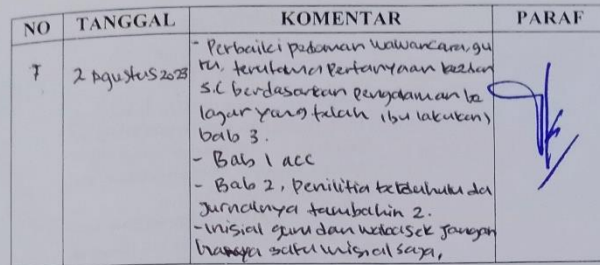 NO TANGGAL KOMENTAR PARAF
7 2 Agustus 2023 - Perbaiki pedoman wawancara, gu
ru, terutama Pertanyaan
s.c berdasarkan pengalaman be
lajar yang telah ibu lakukan)
bab 3.
- Bab 1 acc
- Bab 2, Penilitia terdahulu da
Jurnalnya tambahin 2.
- Inisial guru dan jangan
hanya satu inisial saja,